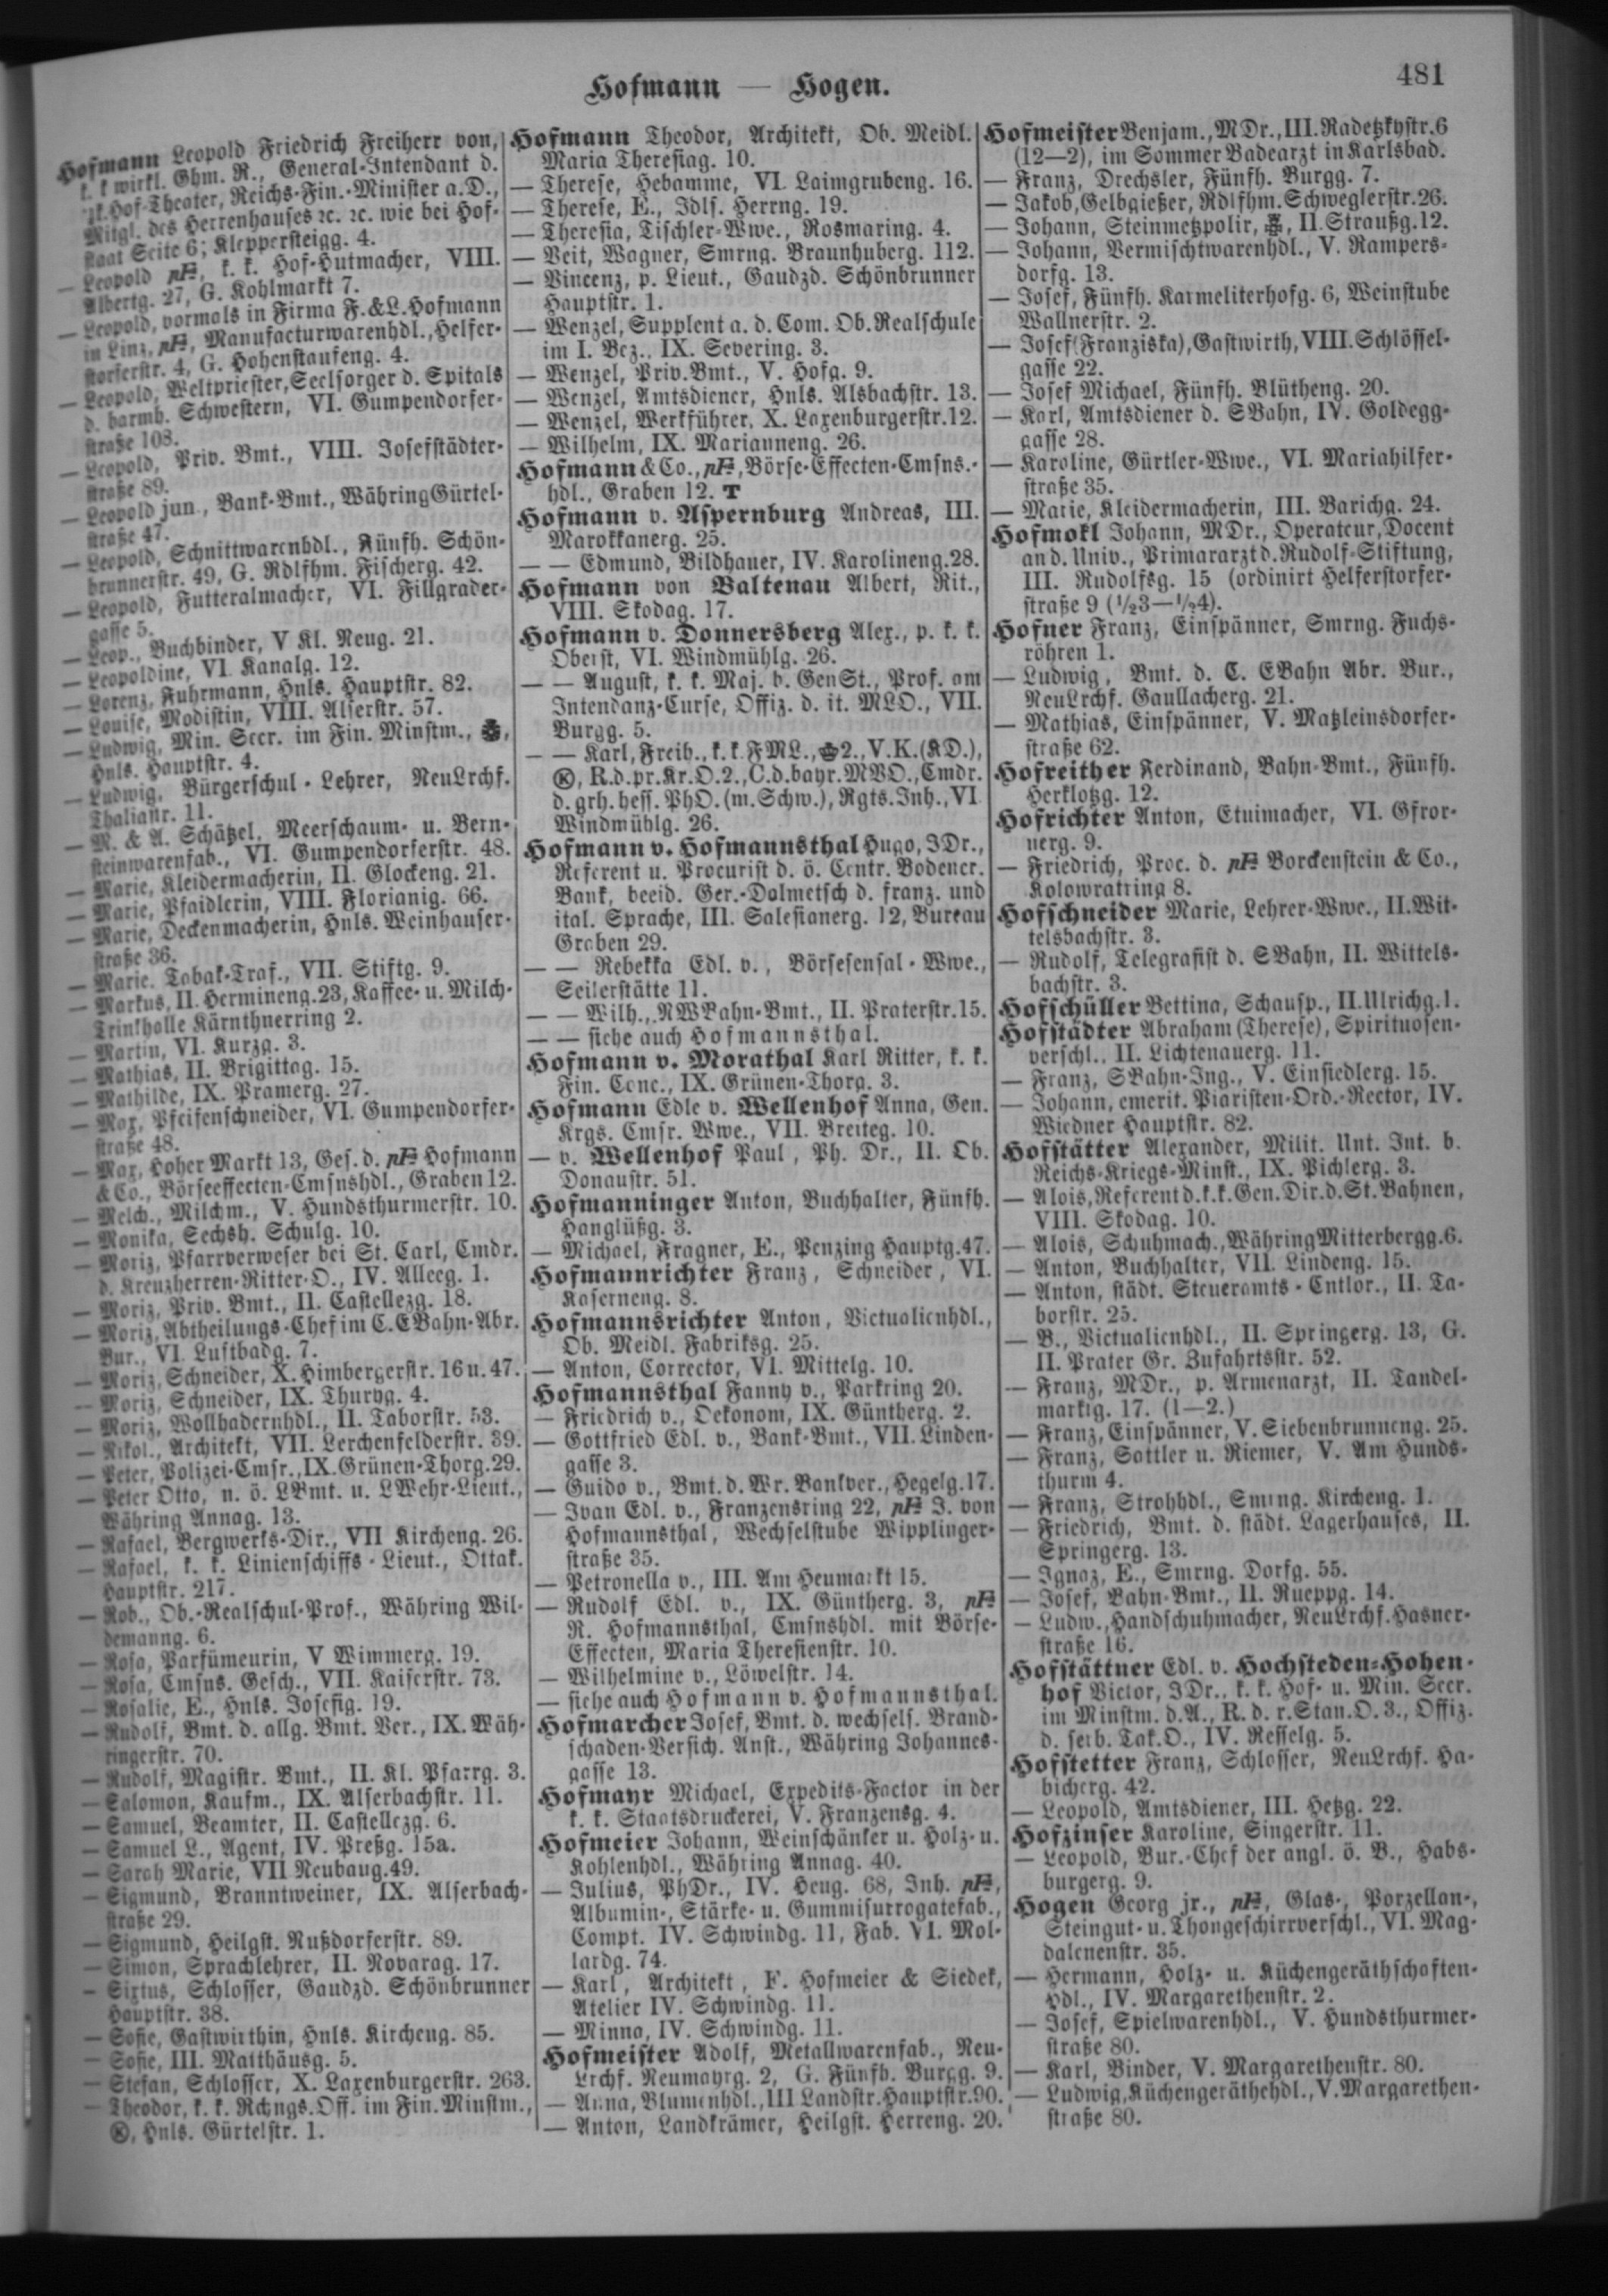 Hofmann — Hogen.
481
Hofmann Leopold Friedrich Freiherr von,
k. k wirkl. Ghm. R., General-Intendant d.
k.k.Hof-Theater, Reichs-Fin.-Minister a. D.,
Mitgl. des Herrenhauses ꝛc. ꝛc. wie bei Hof-
staat Seite 6; Kleppersteigg. 4.
— Leopold, k. k. Hof-Hutmacher, VIII.
Albertg. 27, G. Kohlmarkt 7.
— Leopold, vormals in Firma F. & L. Hofmann
in Linz, Manufacturwarenhdl., Helfer-
storferstr. 4, G. Hohenstaufeng. 4.
— Leopold, Weltpriester, Seelsorger d. Spitals
d. barmh. Schwestern, VI. Gumpendorfer-
straße 108.
— Leopold, Priv. Bmt., VIII. Josefstädter-
straße 89.
— Leopold jun., Bank-Bmt., Währing Gürtel-
straße 47.
— Leopold, Schnittwarenhdl., Fünfh. Schön-
brunnerstr. 49, G. Rdlfhm. Fischerg. 42.
— Leopold, Futteralmacher, VI. Fillgrader-
gasse 5.
— Leop., Buchbinder, V Kl. Neug. 21.
— Leopoldine, VI. Kanalg. 12.
— Lorenz, Fuhrmann, Hnls. Hauptstr. 82.
— Louise, Modistin, VIII. Alserstr. 57.
— Ludwig, Min. Secr. im Fin. Minstm.,
Hnls. Hauptstr. 4.
— Ludwig, Bürgerschul-Lehrer, NeuLrchf.
Thaliastr. 11.
— M. & A. Schätzel, Meerschaum- u. Bern-
steinwarenfab., VI. Gumpendorferstr. 48.
— Marie, Kleidermacherin, II. Glockeng. 21.
— Marie, Pfaidlerin, VIII. Florianig. 66.
— Marie, Deckenmacherin, Hnls. Weinhauser-
straße 36.
— Marie, Tabak-Traf., VII. Stiftg. 9.
— Markus, II. Hermineng. 23, Kaffee- u. Milch-
Trinkhalle Kärnthnerring 2.
— Martin, VI. Kurzg. 3.
— Mathias, II. Brigittag. 15.
— Mathilde, IX. Pramerg. 27.
— Max, Pfeifenschneider, VI. Gumpendorfer-
straße 48.
— Max, Hoher Markt 13, Ges. d. Hofmann
& Co., Börseeffecten-Cmsnshdl., Graben 12.
— Melch., Milchm., V. Hundsthurmerstr. 10.
— Monika, Sechsh. Schulg. 10.
— Moriz, Pfarrverweser bei St. Carl, Cmdr.
d. Kreuzherren-Ritter-O., IV. Alleeg. 1.
— Moriz, Priv. Bmt., II. Castellezg. 18.
— Moriz, Abtheilungs-Chef im C. EBahn-Abr.
Bur., VI. Luftbadg. 7.
— Moriz, Schneider, X. Himbergerstr. 16 u. 47.
— Moriz, Schneider, IX. Thuryg. 4.
— Moriz, Wollhadernhdl., II. Taborstr. 53.
— Nikol., Architekt, VII. Lerchenfelderstr. 39.
— Peter, Polizei-Cmsr., IX. Grünen-Thorg. 29.
— Peter Otto, n. ö. LBmt. u. LWehr-Lieut.,
Währing Annag. 13.
— Rafael, Bergwerks-Dir., VII Kircheng. 26.
— Rafael, k. k. Linienschiffs-Lieut., Ottak.
Hauptstr. 217.
— Rob., Ob.-Realschul-Prof., Währing Wil-
demanng. 6.
— Rosa, Parfümeurin, V Wimmerg. 19.
— Rosa, Cmsns. Gesch., VII. Kaiserstr. 73.
— Rosalie, E., Hnls. Josefig. 19.
— Rudolf, Bmt. d. allg. Bmt. Ver., IX. Wäh-
ringerstr. 70.
— Rudolf, Magistr. Bmt., II. Kl. Pfarrg. 3.
— Salomon, Kaufm., IX. Alserbachstr. 11.
— Samuel, Beamter, II. Castellezg. 6.
— Samuel L., Agent, IV. Preßg. 15a.
— Sarah Marie, VII Neubaug. 49.
— Sigmund, Branntweiner, IX. Alserbach-
straße 29.
— Sigmund, Heilgst. Nußdorferstr. 89.
— Simon, Sprachlehrer, II. Novarag. 17.
— Sixtus, Schlosser, Gaudzd. Schönbrunner
Hauptstr. 38.
— Sofie, Gastwirthin, Hnls. Kircheng. 85.
— Sofie, III. Matthäusg. 5.
— Stefan, Schlosser, X. Laxenburgerstr. 263.
— Theodor, k. k. Rchngs. Off. im Fin. Minstm.,
Hnls. Gürtelstr. 1.
Hofmann Theodor, Architekt, Ob. Meidl.
Maria Theresiag. 10.
— Therese, Hebamme, VI. Laimgrubeng. 16.
— Therese, E., Jdls. Herrng. 19.
— Theresia, Tischler-Wwe., Rosmaring. 4.
— Veit, Wagner, Smrng. Braunhuberg. 112.
— Vincenz, p. Lieut., Gaudzd. Schönbrunner
Hauptstr. 1.
— Wenzel, Supplent a. d. Com. Ob. Realschule
im I. Bez., IX. Severing. 3.
— Wenzel, Priv. Bmt., V. Hofg. 9.
— Wenzel, Amtsdiener, Hnls. Alsbachstr. 13.
— Wenzel, Werkführer, X. Laxenburgerstr. 12.
— Wilhelm, IX. Marianneng. 26.
Hofmann & Co., Börse-Effecten-Cmsns.-
hdl., Graben 12. T
Hofmann v. Aspernburg Andreas, III.
Marokkanerg. 25.
— — Edmund, Bildhauer, IV. Karolineng. 28.
Hofmann von Baltenau Albert, Rit.,
VIII. Skodag. 17.
Hofmann v. Donnersberg Alex., p. k. k.
Oberst, VI. Windmühlg. 26.
— — August, k. k. Maj. d. GenSt., Prof. am
Intendanz-Curse, Offiz. d. it. MLO., VII.
Burgg. 5.
— — Karl, Freih., k. k. FML., 2., V. K. (KD.),
R. d. pr. Kr. O. 2., C. d. bayr. MVO., Cmdr.
d. grh. hess. PhO. (m. Schw.), Rgts. Inh., VI
Windmühlg. 26.
Hofmann v. Hofmannsthal Hugo, JDr.,
Referent u. Procurist d. ö. Centr. Bodencr.
Bank, beeid. Ger.-Dolmetsch d. franz. und
ital. Sprache, III. Salesianerg. 12, Bureau
Graben 29.
— — Rebekka Edl. v., Börsesensal-Wwe.,
Seilerstätte 11.
— — Wilh., NWBahn-Bmt., II. Praterstr. 15.
— — siehe auch Hofmannsthal.
Hofmann v. Morathal Karl Ritter, k. k.
Fin. Conc., IX. Grünen-Thorg. 3.
Hofmann Edle v. Wellenhof Anna, Gen.
Krgs. Cmsr. Wwe., VII. Breiteg. 10.
— v. Wellenhof Paul, Ph. Dr., II. Ob.
Donaustr. 51.
Hofmanninger Anton, Buchhalter, Fünfh.
Hanglüßg. 3.
— Michael, Fragner, E., Penzing Hauptg. 47.
Hofmannrichter Franz, Schneider, VI.
Kaserneng. 8.
Hofmannsrichter Anton, Victualienhdl.,
Ob. Meidl. Fabriksg. 25.
— Anton, Corrector, VI. Mittelg. 10.
Hofmannsthal Fanny v., Parkring 20.
— Friedrich v., Oekonom, IX. Güntherg. 2.
— Gottfried Edl. v., Bank-Bmt., VII. Linden-
gasse 3.
— Guido v., Bmt. d. Wr. Bankver., Hegelg. 17.
— Ivan Edl. v., Franzensring 22, J. von
Hofmannsthal, Wechselstube Wipplinger-
straße 35.
— Petronella v., III. Am Heumarkt 15.
— Rudolf Edl. v., IX. Güntherg. 3,
R. Hofmannsthal, Cmsnshdl. mit Börse-
Effecten, Maria Theresienstr. 10.
— Wilhelmine v., Löwelstr. 14.
— siehe auch Hofmann v. Hofmannsthal.
Hofmarcher Josef, Bmt. d. wechsels. Brand-
schaden-Versich. Anst., Währing Johannes-
gasse 13.
Hofmayr Michael, Expedits-Factor in der
k. k. Staatsdruckerei, V. Franzensg. 4.
Hofmeier Johann, Weinschänker u. Holz- u.
Kohlenhdl., Währing Annag. 40.
— Julius, PhDr., IV. Heug. 68, Inh.
Albumin-, Stärke- u. Gummisurrogatefab.,
Compt. IV. Schwindg. 11, Fab. VI. Mol-
lardg. 74.
— Karl, Architekt, F. Hofmeier & Siedek,
Atelier IV. Schwindg. 11.
— Minna, IV. Schwindg. 11.
Hofmeister Adolf, Metallwarenfab., Neu-
Lrchf. Neumayrg. 2, G. Fünfh. Burgg. 9.
— Anna, Blumenhdl., III Landstr. Hauptstr. 90.
— Anton, Landkrämer, Heilgst. Herreng. 20.
Hofmeister Benjam., MDr., III. Radetzkystr. 6
(12—2), im Sommer Badearzt in Karlsbad.
— Franz, Drechsler, Fünfh. Burgg. 7.
— Jakob, Gelbgießer, Rdlfhm. Schweglerstr. 26.
— Johann, Steinmetzpolir, II. Straußg. 12.
— Johann, Vermischtwarenhdl., V. Rampers-
dorfg. 13.
— Josef, Fünfh. Karmeliterhofg. 6, Weinstube
Wallnerstr. 2.
— Josef (Franziska), Gastwirth, VIII. Schlössel-
gasse 22.
— Josef Michael, Fünfh. Blütheng. 20.
— Karl, Amtsdiener d. SBahn, IV. Goldegg-
gasse 28.
— Karoline, Gürtler-Wwe., VI. Mariahilfer-
straße 35.
— Marie, Kleidermacherin, III. Barichg. 24.
Hofmokl Johann, MDr., Operateur, Docent
an d. Univ., Primararzt d. Rudolf-Stiftung,
III. Rudolfsg. 15 (ordinirt Helferstorfer-
straße 9 (1/23—1/24).
Hofner Franz, Einspänner, Smrng. Fuchs-
röhren 1.
— Ludwig, Bmt. d. C. EBahn Abr. Bur.,
NeuLrchf. Gaullacherg. 21.
— Mathias, Einspänner, V. Matzleinsdorfer-
straße 62.
Hofreither Ferdinand, Bahn-Bmt., Fünfh.
Herklotzg. 12.
Hofrichter Anton, Etuimacher, VI. Gfror-
nerg. 9.
— Friedrich, Proc. d. Borckenstein & Co.,
Kolowratring 8.
Hofschneider Marie, Lehrer-Wwe., II. Wit-
telsbachstr. 3.
— Rudolf, Telegrafist d. SBahn, II. Wittels-
bachstr. 3.
Hofschüller Bettina, Schausp., II. Ulrichg. 1.
Hofstädter Abraham (Therese), Spirituosen-
verschl., II. Lichtenauerg. 11.
— Franz, SBahn-Ing., V. Einsiedlerg. 15.
— Johann, emerit. Piaristen-Ord.-Rector, IV.
Wiedner Hauptstr. 82.
Hofstätter Alexander, Milit. Unt. Int. b.
Reichs-Kriegs-Minst., IX. Pichlerg. 3.
— Alois, Referent d. k. k. Gen. Dir. d. St. Bahnen,
VIII. Skodag. 10.
— Alois, Schuhmach., Währing Mitterbergg. 6.
— Anton, Buchhalter, VII. Lindeng. 15.
— Anton, städt. Steueramts-Cntlor., II. Ta-
borstr. 25.
— B., Victualienhdl., II. Springerg. 13, G.
II. Prater Gr. Zufahrtsstr. 52.
— Franz, MDr., p. Armenarzt, II. Tandel-
marktg. 17. (1—2.)
— Franz, Einspänner, V. Siebenbrunneng. 25.
— Franz, Sattler u. Riemer, V. Am Hunds-
thurm 4.
— Franz, Strohhdl., Smrng. Kircheng. 1.
— Friedrich, Bmt. d. städt. Lagerhauses, II.
Springerg. 13.
— Ignaz, E., Smrng. Dorfg. 55.
— Josef, Bahn-Bmt., II. Rueppg. 14.
— Ludw., Handschuhmacher, NeuLrchf. Hasner-
straße 16.
Hofstättner Edl. v. Hochsteden-Hohen-
hof Victor, JDr., k. k. Hof- u. Min. Secr.
im Minstm. d. A., R. d. r. Stan. O. 3., Offiz.
d. serb. Tak. O., IV. Resselg. 5.
Hofstetter Franz, Schlosser, NeuLrchf. Ha-
bicherg. 42.
— Leopold, Amtsdiener, III. Hetzg. 22.
Hofzinser Karoline, Singerstr. 11.
— Leopold, Bur.-Chef der angl. ö. B., Habs-
burgerg. 9.
Hogen Georg jr., Glas-, Porzellan-,
Steingut- u. Thongeschirrverschl., VI. Mag-
dalenenstr. 35.
— Hermann, Holz- u. Küchengeräthschaften-
Hdl., IV. Margarethenstr. 2.
— Josef, Spielwarenhdl., V. Hundsthurmer-
straße 80.
— Karl, Binder, V. Margarethenstr. 80.
— Ludwig, Küchengeräthehdl., V. Margarethen-
straße 80.